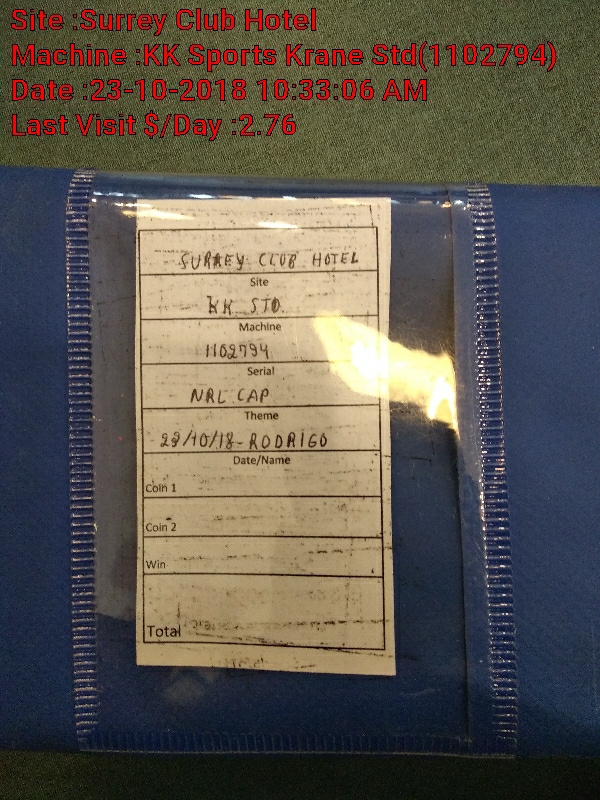 Site :Surrey Club Hotel
Machine :KK Sports Krane Std(1102794)
Date :23-10-2018 10:33:06 AM
Last Visit $/Day :2.76
SURREY CLUB HOTEL
Site
KK STD.
Machine
1102794
Serial
NRL CAP
Theme
23/10/18-RODRIGO
Date/Name
Coin 1
Coin 2
Win
Total